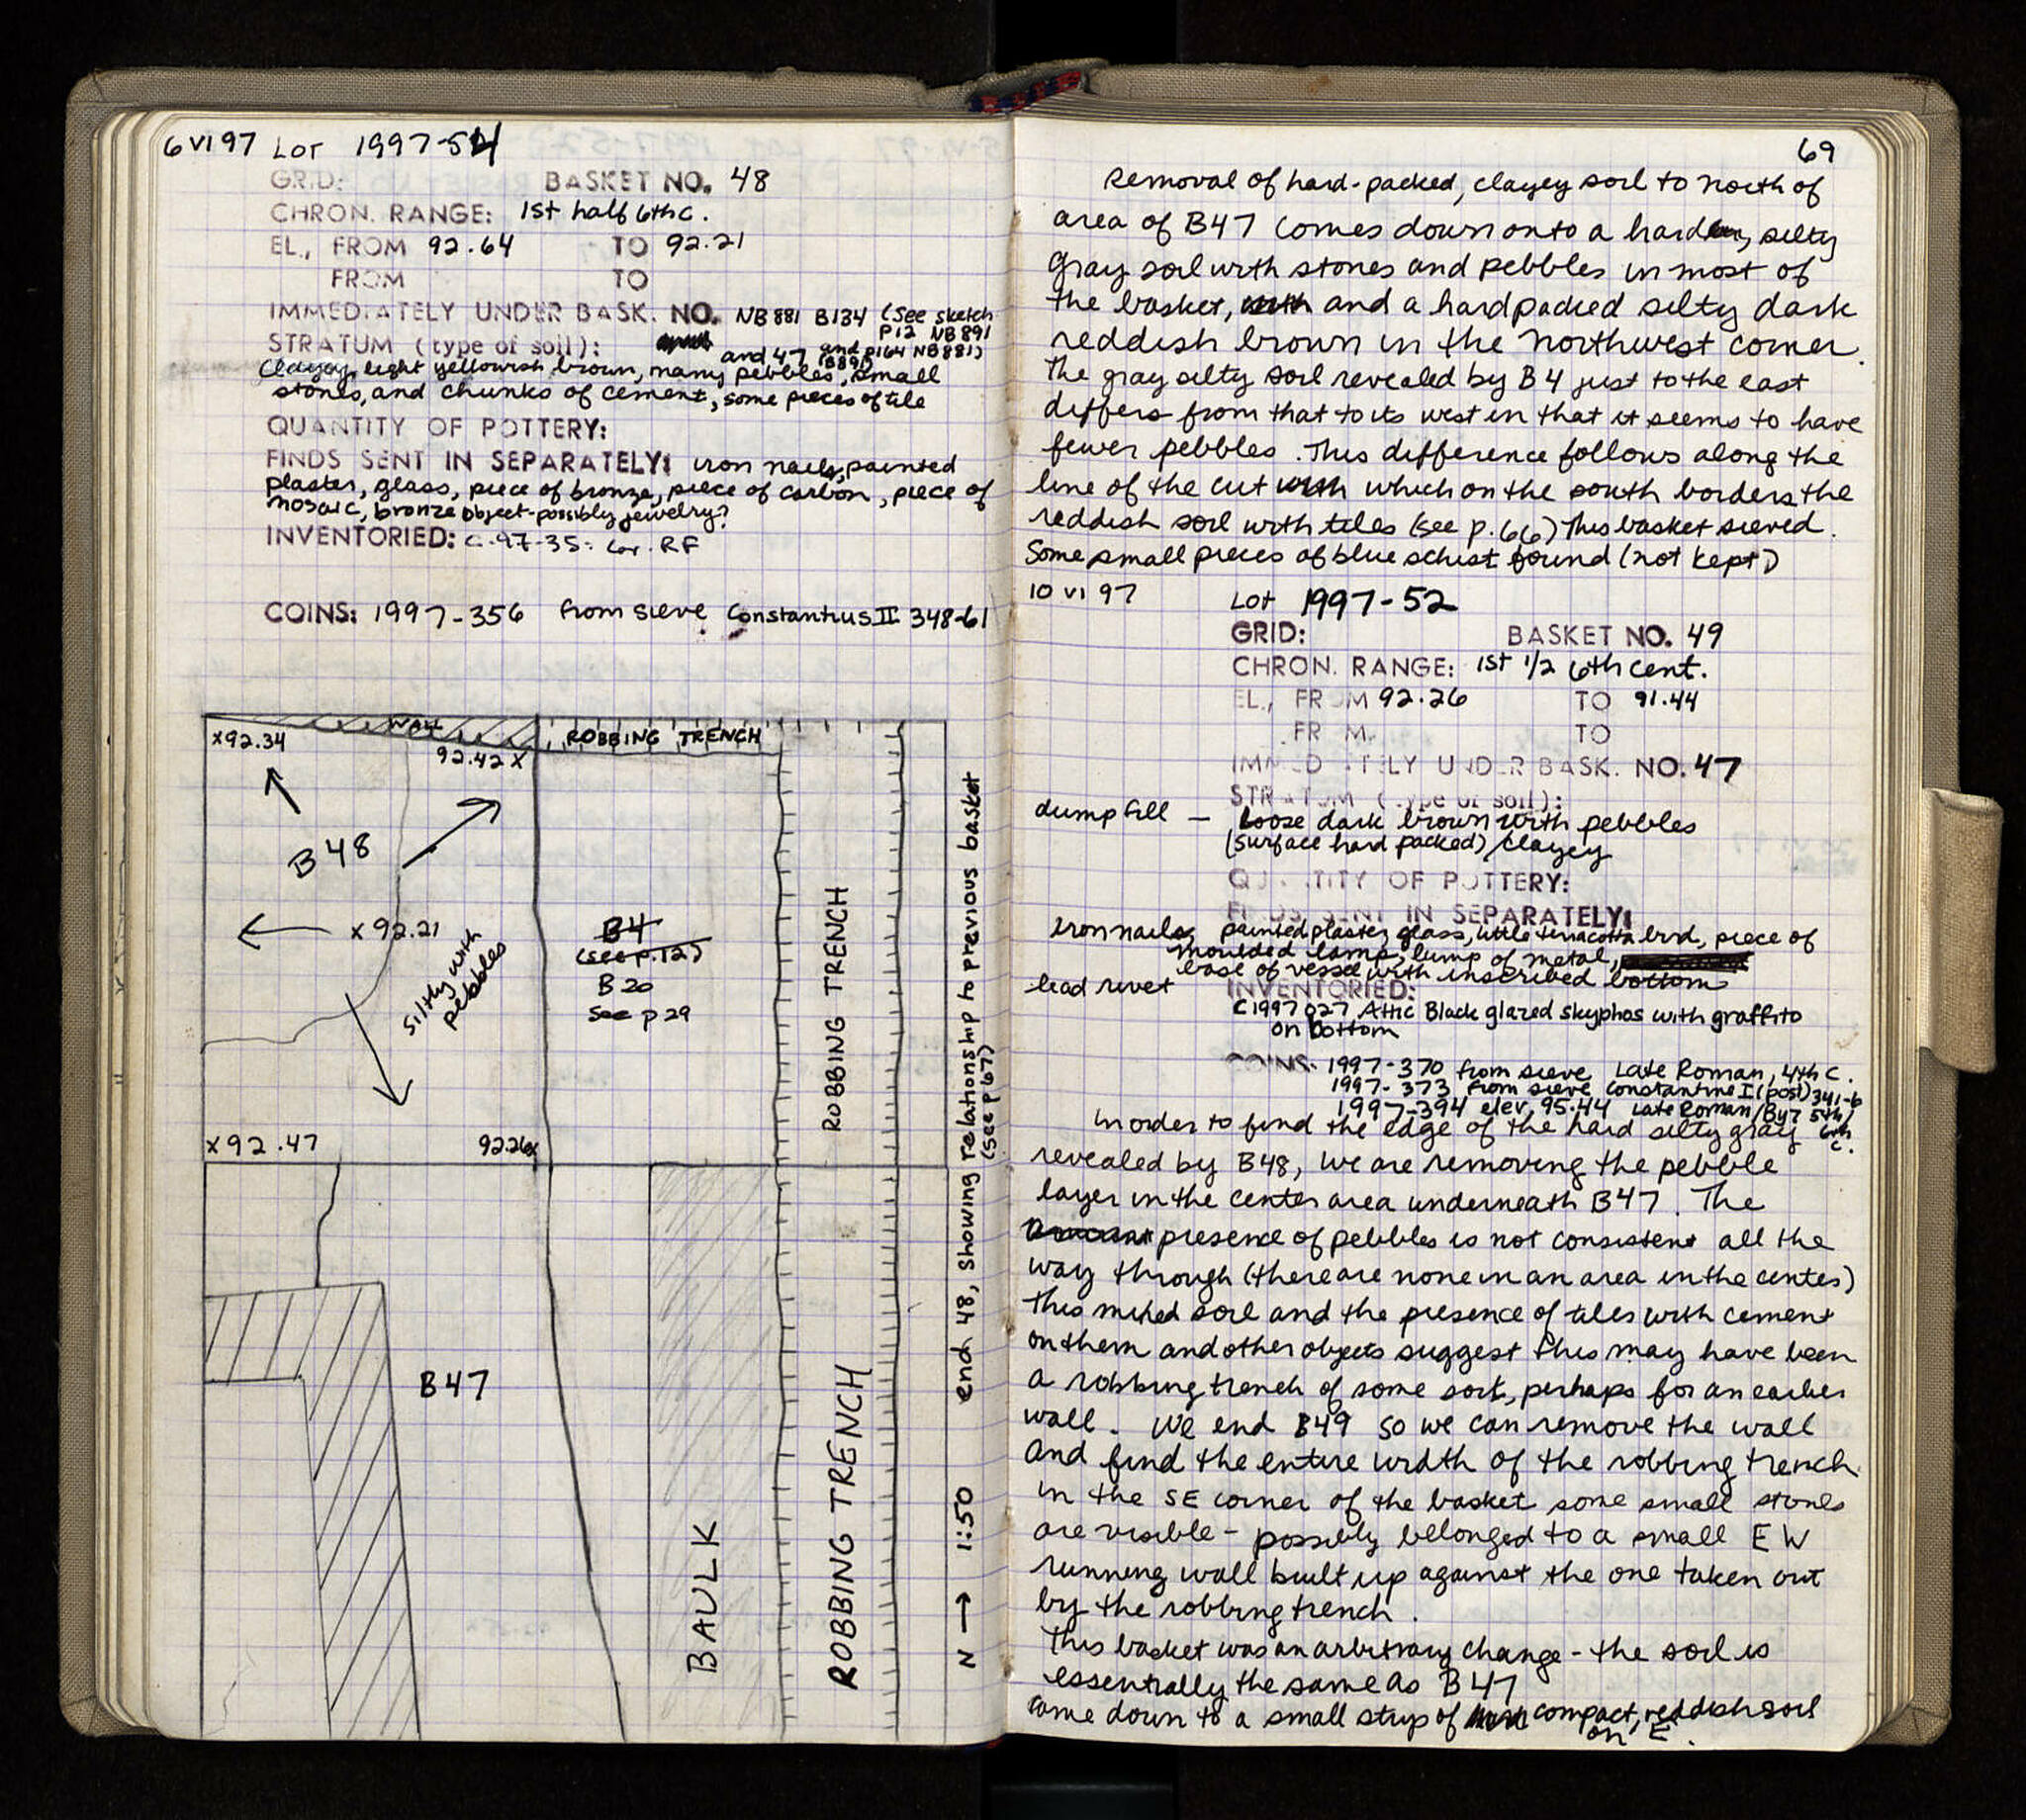 6 VI 97 Lot 1997-54
GRID: BASKET NO. 48
CHRON. RANGE: 1st half 6th c.
EL., FROM 92.64 TO 92.21
FROM TO
IMMEDIATELY UNDER BASK. NO. NB 881 B134 (see sketch
p12 NB 891
STRATUM (type of soil): and 47 (B891) and p164 NB 881)
Clayey, light yellowish brown, many pebbles, small
stones, and chunks of cement, some pieces of tile
QUANTITY OF POTTERY:
FINDS SENT IN SEPARATELY: iron nails, painted
plaster, glass, piece of bronze, piece of carbon, piece of
mosaic, bronze object-possibly jewelry?
INVENTORIED: C-97-35: Cor. RF
COINS: 1997-356 from sieve Constantius II 348-61
WALL
ROBBING TRENCH
x92.34
92.42 x
B48
x 92.21
silty with
pebbles
B4
(see p.12)
B20
See p29
ROBBING TRENCH
x92.47
92.26x
B47
BAULK
ROBBING TRENCH
N → 1:50 end 48, showing relationship to previous basket
(see p 67)
69
Removal of hard-packed, clayey soil to north of
area of B47 comes down onto a hard, silty
gray soil with stones and pebbles in most of
the basket, with and a hard packed silty dark
reddish brown in the northwest corner.
The gray silty soil revealed by B4 just to the east
differs from that to its west in that it seems to have
fewer pebbles. This difference follows along the
line of the cut with which on the south borders the
reddish soil with tiles (see p.66) This basket sieved.
Some small pieces of blue schist found (not kept)
10 VI 97 Lot 1997-52
GRID: BASKET NO. 49
CHRON. RANGE: 1st 1/2 6th cent.
EL., FROM 92.26 TO 91.44
FROM TO
IMMEDIATELY UNDER BASK. NO. 47
STRATUM (type of soil):
dump fill — loose dark brown with pebbles
(surface hard packed) clayey
QUANTITY OF POTTERY:
FINDS SENT IN SEPARATELY:
iron nails, painted plaster, glass, little terracotta bird, piece of
moulded lamp, lump of metal,
base of vessel with inscribed bottom
lead rivet INVENTORIED:
C1997 027 Attic Black glazed skyphos with graffito
on bottom
COINS: 1997-370 from sieve Late Roman, 4th C.
1997-373 from sieve Constantine I (post) 341-6
1997-394 elev. 95.44 Late Roman/Byz 5th/
6th c.
In order to find the edge of the hard silty gray
revealed by B48, we are removing the pebble
layer in the center area underneath B47. The
presence of pebbles is not consistent all the
way through (there are none in an area in the center)
This mixed soil and the presence of tiles with cement
on them and other objects suggest this may have been
a robbing trench of some sort, perhaps for an earlier
wall. We end B49 so we can remove the wall
and find the entire width of the robbing trench.
in the SE corner of the basket some small stones
are visible - possibly belonged to a small E W
running wall built up against the one taken out
by the robbing trench.
This basket was an arbitrary change - the soil is
essentially the same as B47
Came down to a small strip of compact, reddish soil
on E.